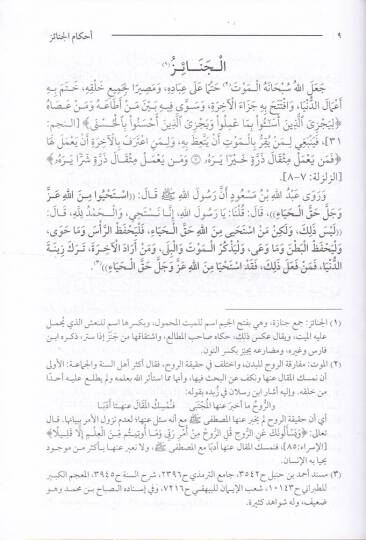 ٩ أحكام الجنائز
الْجَنَائِزُ(١)
جَعَلَ اللهُ سُبْحَانَهُ الْمَوْتَ(٢) حَتْمًا عَلَى عِبَادِهِ، وَمَصِيرًا لِجَمِيعِ خَلْقِهِ، خَتَمَ بِهِ
أَعْمَالَ الدُّنْيَا، وَافْتَتَحَ بِهِ جَزَاءَ الْآخِرَةِ، وَسَوَّى فِيهِ بَيْنَ مَنْ أَطَاعَهُ وَمَنْ عَصَاهُ
﴿لِيَجْزِيَ الَّذِينَ أَسَاءُوا بِمَا عَمِلُوا وَيَجْزِيَ الَّذِينَ أَحْسَنُوا بِالْحُسْنَى﴾ [النجم:
٣١]، فَيَنْبَغِي لِمَنْ يُقِرُّ بِالْمَوْتِ أَنْ يَتَّعِظَ بِهِ، وَلِمَنِ اعْتَرَفَ بِالْآخِرَةِ أَنْ يَعْمَلَ لَهَا
﴿فَمَن يَعْمَلْ مِثْقَالَ ذَرَّةٍ خَيْرًا يَرَهُ ۝ وَمَن يَعْمَلْ مِثْقَالَ ذَرَّةٍ شَرًّا يَرَهُ﴾
[الزلزلة: ٧-٨].
وَرَوَى عَبْدُ اللهِ بْنُ مَسْعُودٍ أَنَّ رَسُولَ اللهِ ﷺ قَالَ: ((اسْتَحْيُوا مِنَ اللهِ عَزَّ
وَجَلَّ حَقَّ الْحَيَاءِ))، قَالَ: قُلْنَا: يَا رَسُولَ اللهِ، إِنَّا نَسْتَحِي، وَالْحَمْدُ لِلَّهِ، قَالَ:
((لَيْسَ ذَلِكَ، وَلَكِنْ مَنِ اسْتَحْيَى مِنَ اللهِ حَقَّ الْحَيَاءِ، فَلْيَحْفَظِ الرَّأْسَ وَمَا حَوَى،
وَلْيَحْفَظِ الْبَطْنَ وَمَا وَعَى، وَلْيَذْكُرِ الْمَوْتَ وَالْبِلَى، وَمَنْ أَرَادَ الْآخِرَةَ، تَرَكَ زِينَةَ
الدُّنْيَا، فَمَنْ فَعَلَ ذَلِكَ، فَقَدْ اسْتَحْيَا مِنَ اللهِ عَزَّ وَجَلَّ حَقَّ الْحَيَاءِ))(٣).
(١) الجنائز: جمع جنازة، وهي بفتح الجيم اسم للميت المحمول، وبكسرها اسم للنعش الذي يُحمل
عليه الميت، ويقال عكس ذلك، حكاه صاحب المطالع، واشتقاقها من جَنَزَ إذا ستر، ذكره ابن
فارس وغيره، ومضارعه يجنِز بكسر النون.
(٢) الموت: مفارقة الروح للبدن، واختلف في حقيقة الروح، فقال أكثر أهل السنة والجماعة: الأولى
أن نمسك المقال عنها ونكف عن البحث فيها، وأنها مما استأثر الله بعلمه ولم يطلع عليه أحدًا
من خلقه. وإليه أشار ابن رسلان في زُبده بقوله:
والرُّوحُ مَا أخبرَ عنها المُجْتَبَى فنُمْسِكُ المقالَ عنها أدَبَا
أي أن حقيقة الروح لم يخبر عنها المصطفى ﷺ مع أنه سئل عنها؛ لعدم نزول الأمر ببيانها. قال
تعالى: ﴿وَيَسْأَلُونَكَ عَنِ الرُّوحِ قُلِ الرُّوحُ مِنْ أَمْرِ رَبِّي وَمَا أُوتِيتُم مِّنَ الْعِلْمِ إِلَّا قَلِيلًا﴾
[الإسراء: ٨٥]، فنمسك المقال عنها أدبًا مع المصطفى ﷺ، ولا نعبر عنها بأكثر من موجود
يحيا به الإنسان.
(٣) مسند أحمد بن حنبل ح٣٥٤٢، جامع الترمذي ح٢٣٩٦، شرح السنة ح٣٩٤٥، المعجم الكبير
للطبراني ح١٠١٤٣، شعب الإيمان للبيهقي ح٧٢١٦، وفي إسناده الصباح بن محمد وهو
ضعيف، وله شواهد كثيرة.